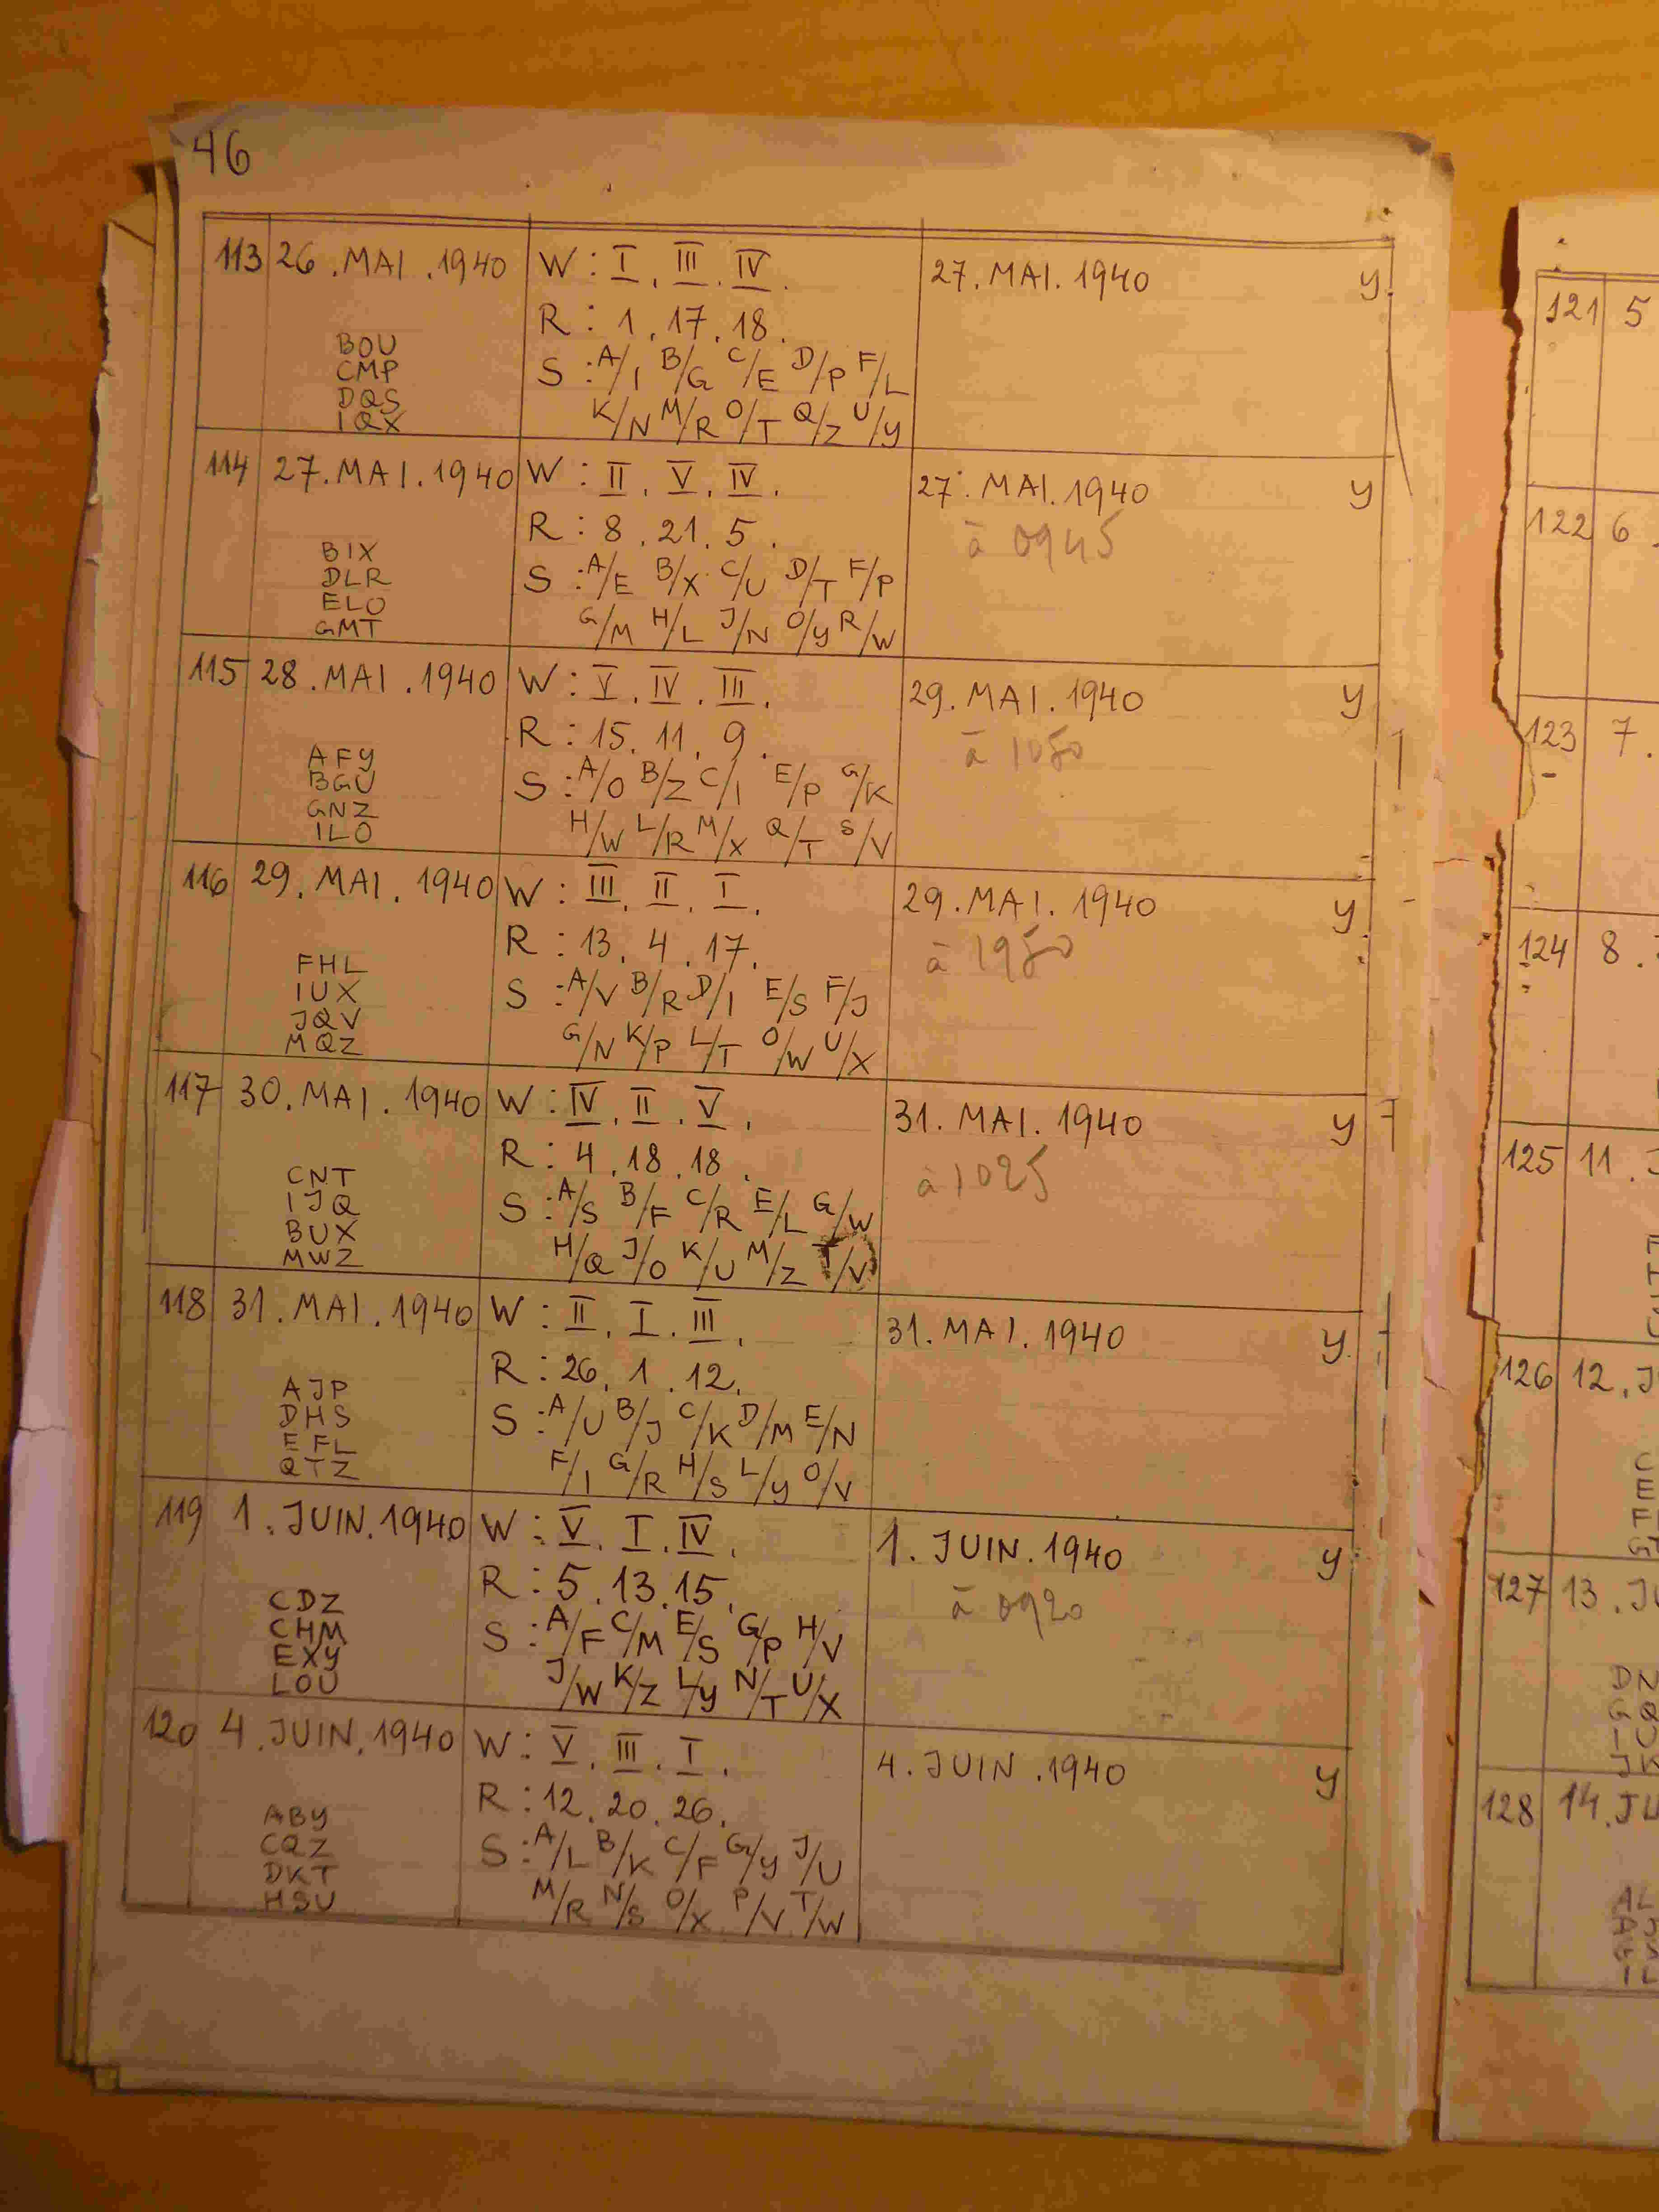 46
113 26.MAI.1940 W: I. III. IV. 27.MAI.1940 y.
R: 1.17.18.
BOU
CMP S: A/I B/G C/E D/P F/L
DQS
IQX K/N M/R O/T Q/Z U/y
114 27.MAI.1940 W: II. V. IV. 27.MAI.1940 y
R: 8.21.5. à 0945
BIX
DLR S: A/E B/X C/U D/T F/P
ELO
GMT G/M H/L J/N O/y R/W
115 28.MAI.1940 W: V. IV. III. 29.MAI.1940 y
R: 15.11.9. à 1050
AFy
BGU S: A/O B/Z C/I E/P G/K
GNZ
ILO H/W L/R M/X Q/T S/V
116 29.MAI.1940 W: III. II. I. 29.MAI.1940 y.
R: 13.4.17. à 1950
FHL
IUX S: A/V B/R D/I E/S F/J
JQV
MQZ G/N K/P L/T O/W U/X
117 30.MAI.1940 W: IV. II. V. 31.MAI.1940 y
R: 4.18.18. à 1025
CNT
IJQ S: A/S B/F C/R E/L G/W
BUX
MWZ H/Q J/O K/U M/Z T/V
118 31.MAI.1940 W: II. I. III. 31.MAI.1940 y.
R: 26.1.12.
AJP
DHS S: A/U B/J C/K D/M E/N
EFL
QTZ F/I G/R H/S L/y O/V
119 1.JUIN.1940 W: V. I. IV. 1.JUIN.1940 y
R: 5.13.15. à 0920
CDZ
CHM S: A/F C/M E/S G/P H/V
EXy
LOU J/W K/Z L/y N/T U/X
120 4.JUIN.1940 W: V. III. I. 4.JUIN.1940 y
R: 12.20.26.
ABy
CQZ S: A/L B/K C/F G/y J/U
DKT
HSU M/R N/S O/X P/V T/W
121 5
122 6.
123 7.
124 8.
125 11.J
126 12.J
127 13.JU
128 14.JU